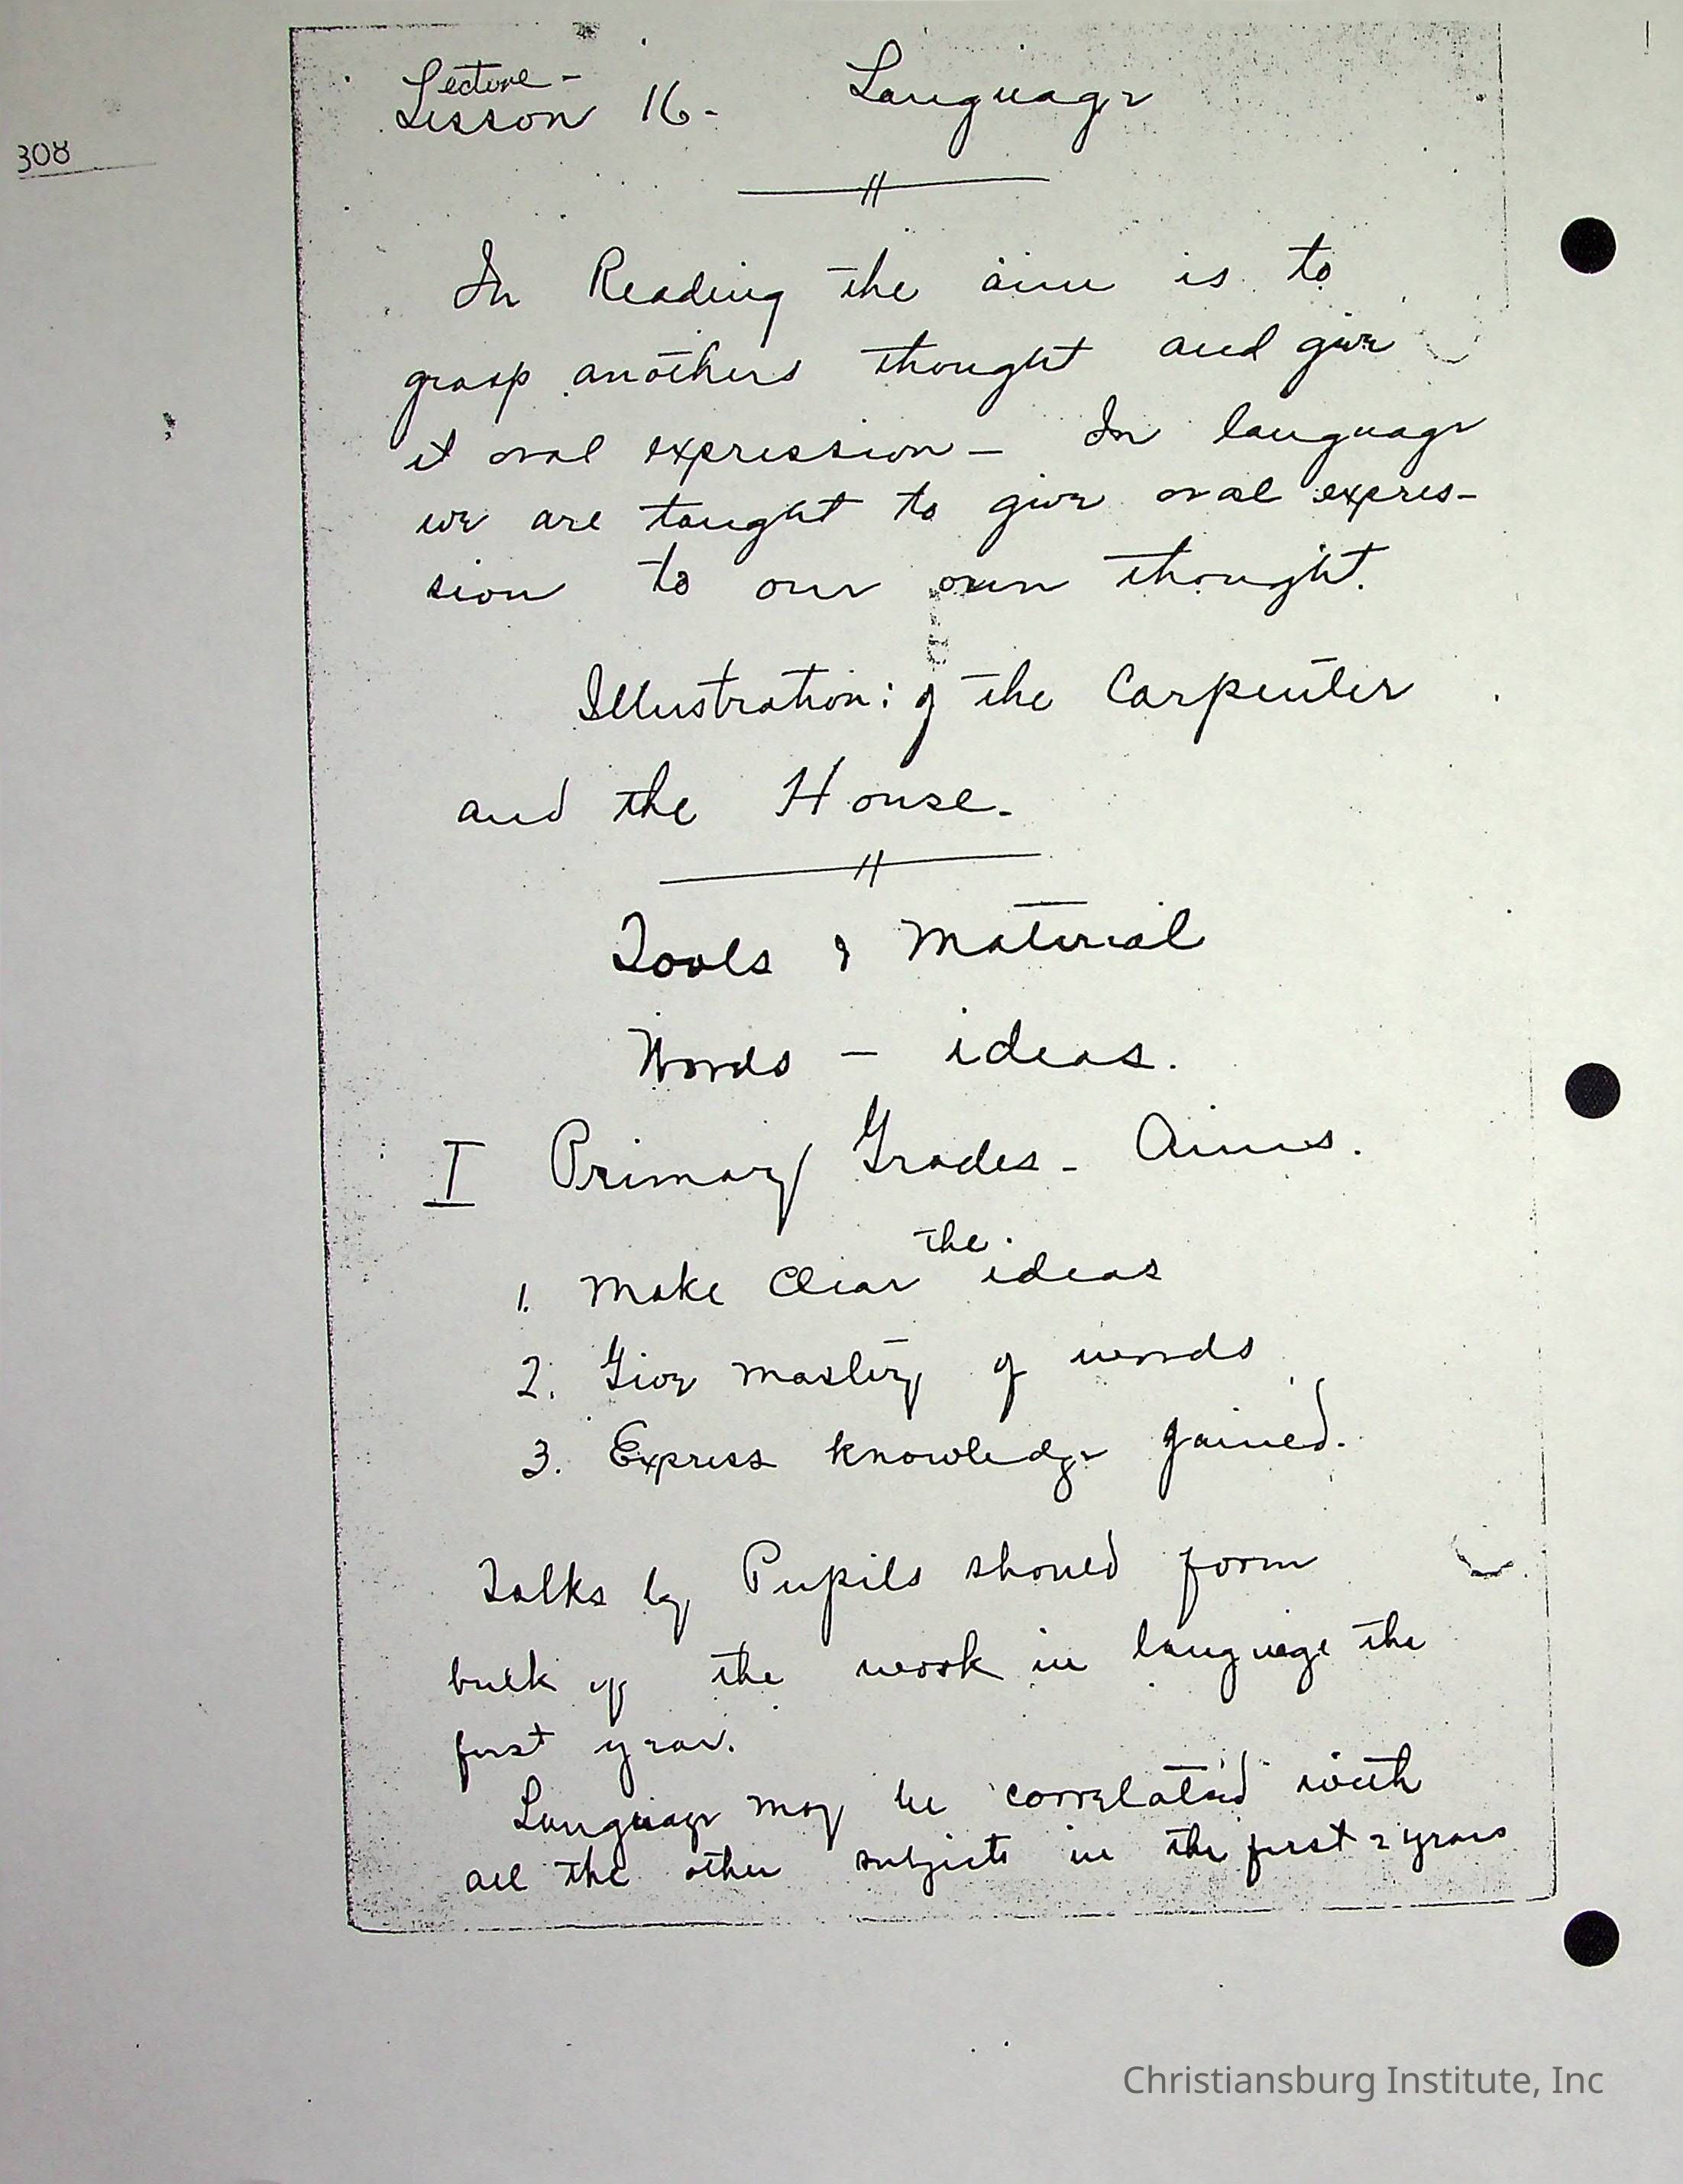 Lecture -
Lesson 16- Language
308
In Reading the aim is to
grasp anothers thought and give
it oral expression - In language
we are taught to give oral expres-
sion to our own thought.
Illustration: of the Carpenter
and the House.
Tools & Material
Words - ideas.
I Primary Grades - Aims.
the
1. Make Clear ideas
2. Give mastery of words
3. Express knowledge gained.
Talks by Pupils should form
bulk of the work in language the
first year.
Language may be correlated with
all the other subjects in the first 2 years
Christiansburg Institute, Inc